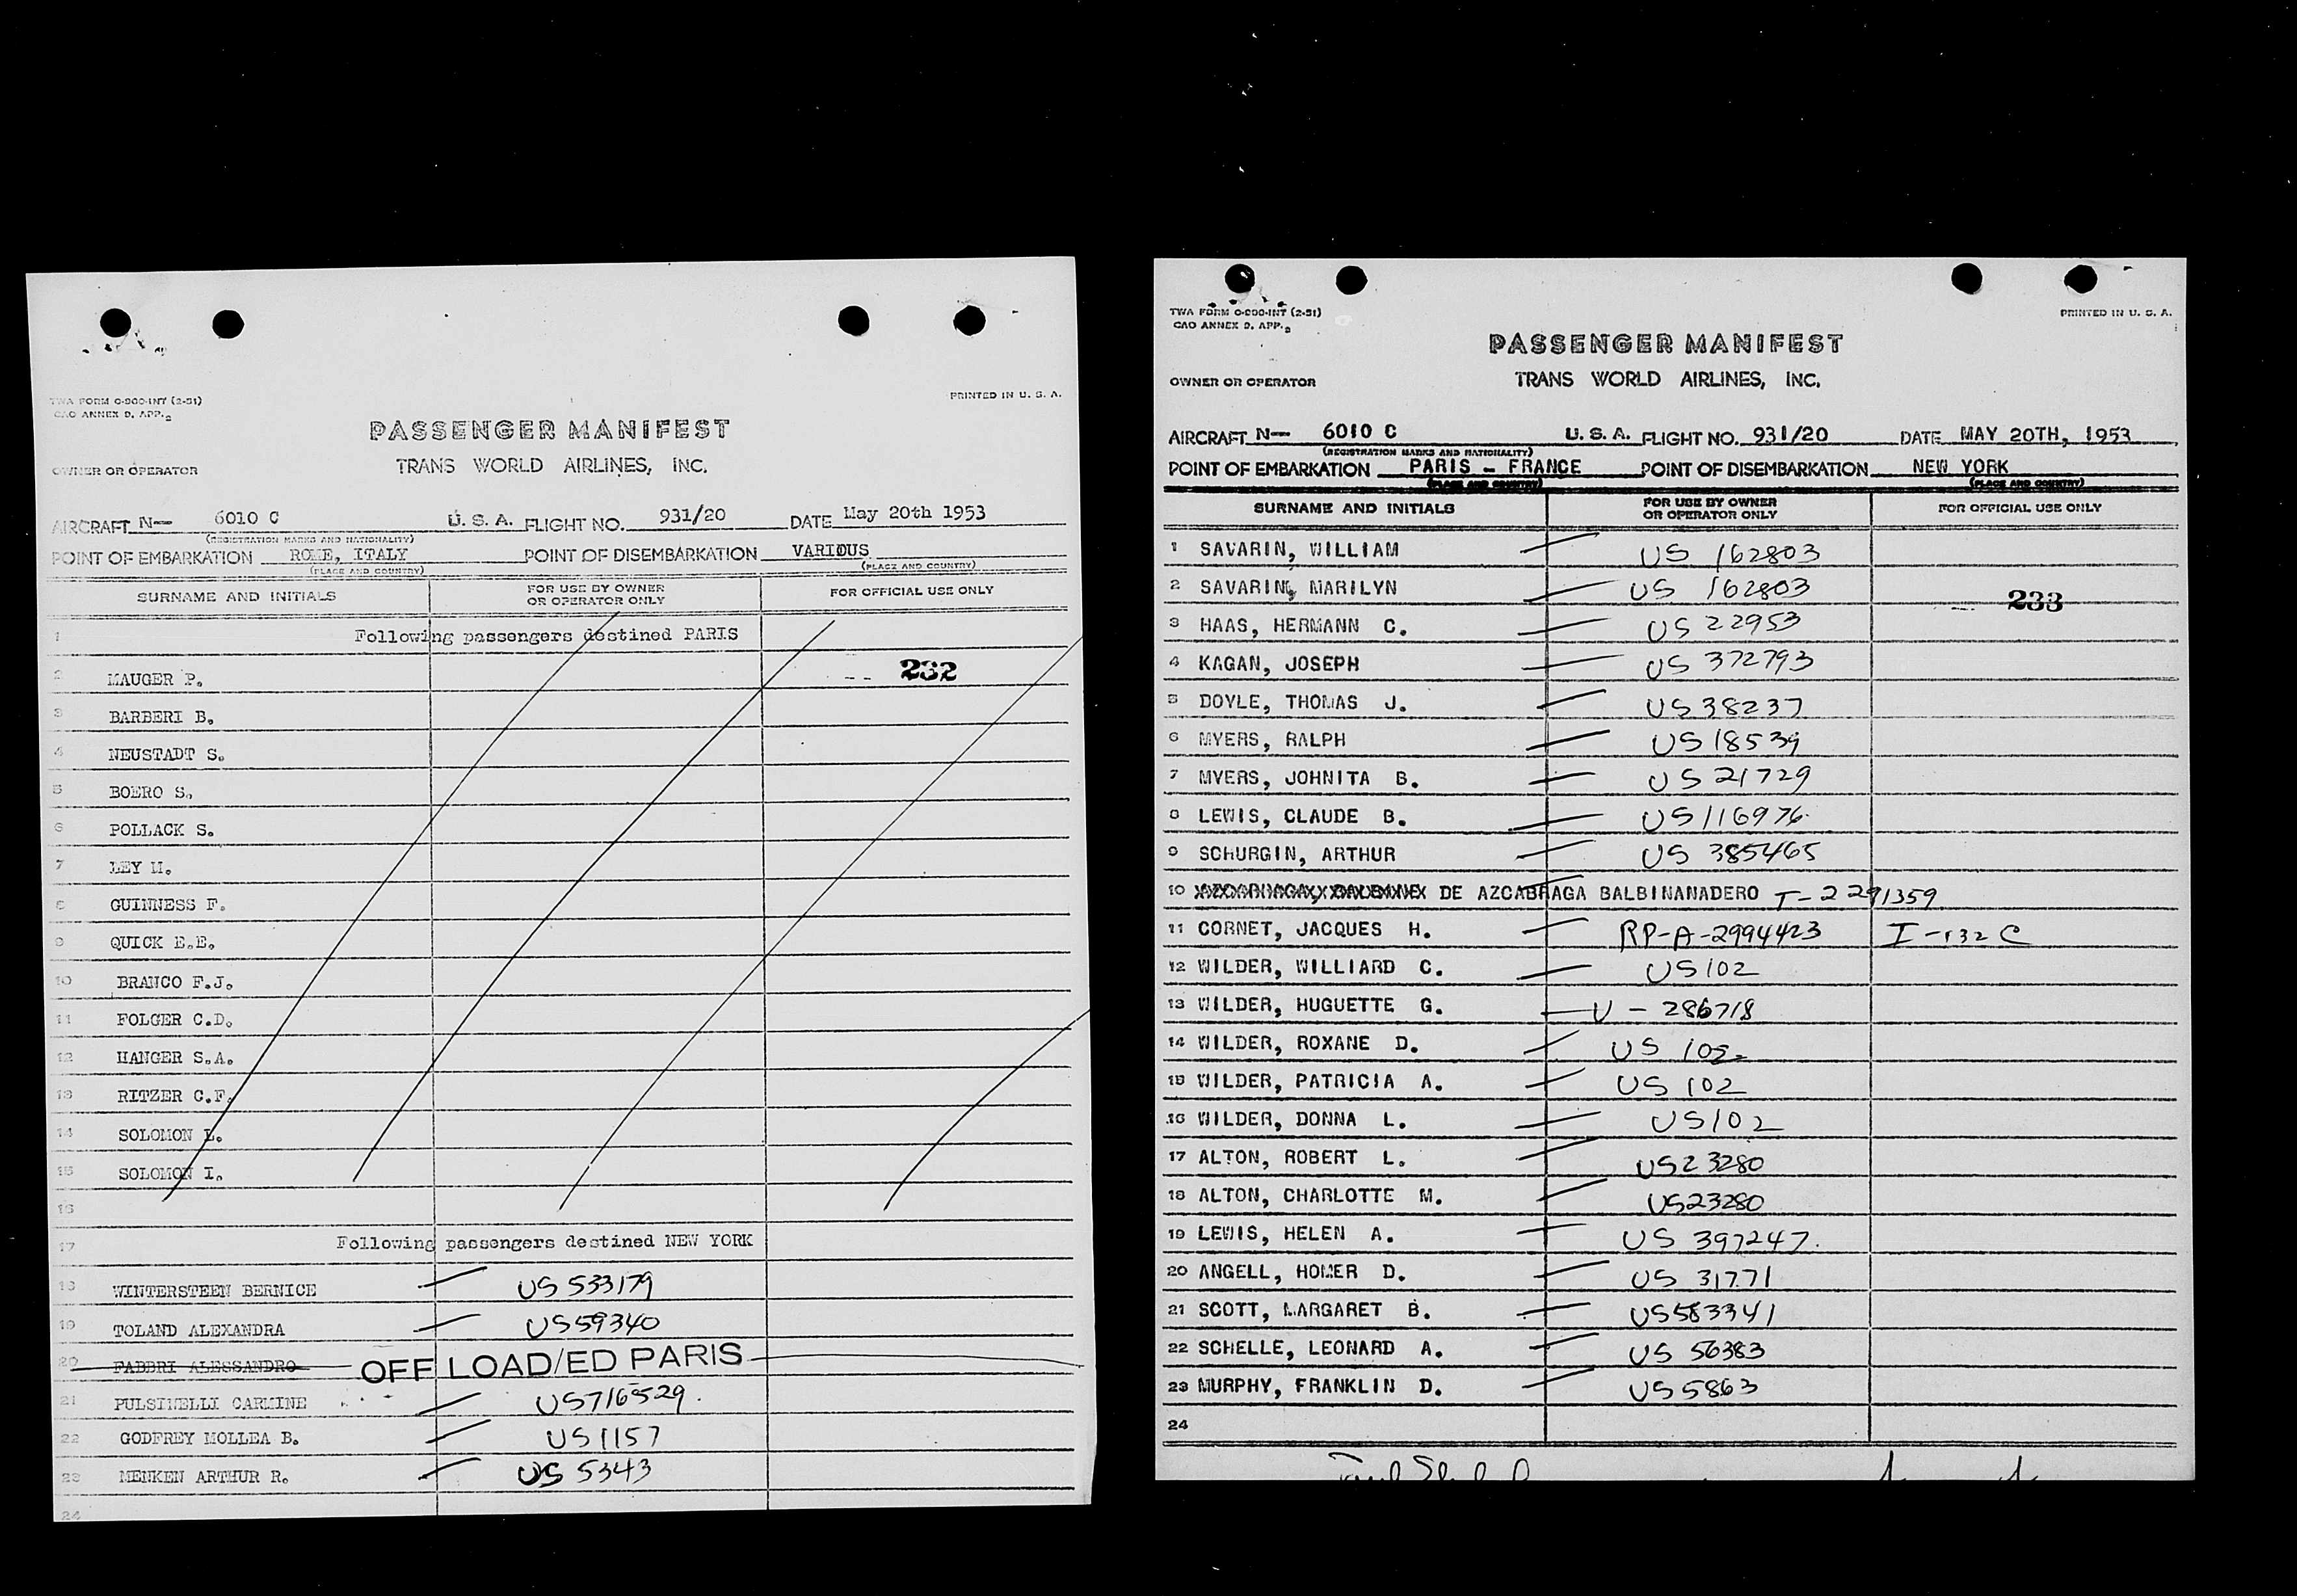 TWA FORM O-800-INT (2-51)
CAO ANNEX 9, APP. 2
PRINTED IN U. S. A.
PASSENGER MANIFEST
OWNER OR OPERATOR
TRANS WORLD AIRLINES, INC.
AIRCRAFT N— 6010 C U. S. A. FLIGHT NO. 931/20 DATE May 20th 1953
(REGISTRATION MARKS AND NATIONALITY)
POINT OF EMBARKATION ROME, ITALY POINT OF DISEMBARKATION VARIOUS
(PLACE AND COUNTRY) (PLACE AND COUNTRY)
SURNAME AND INITIALS FOR USE BY OWNER OR OPERATOR ONLY FOR OFFICIAL USE ONLY
1 Following passengers destined PARIS
2 MAUGER P. 232
3 BARBERI B.
4 NEUSTADT S.
5 BOERO S.
6 POLLACK S.
7 LEY M.
8 GUINNESS F.
9 QUICK E.E.
10 BRANCO F.J.
11 FOLGER C.D.
12 HANGER S.A.
13 RITZER C.F.
14 SOLOMON L.
15 SOLOMON I.
16
17 Following passengers destined NEW YORK
18 WINTERSTEEN BERNICE US 533179
19 TOLAND ALEXANDRA US59340
20 FABBRI ALESSANDRO OFF LOAD/ED PARIS
21 PULSINELLI CARMINE US716529.
22 GODFREY MOLLEA B. US1157
23 MENKEN ARTHUR R. US 5343
24
TWA FORM O-800-INT (2-51)
CAO ANNEX 9, APP. 2
PRINTED IN U. S. A.
PASSENGER MANIFEST
OWNER OR OPERATOR
TRANS WORLD AIRLINES, INC.
AIRCRAFT N— 6010 C U. S. A. FLIGHT NO. 931/20 DATE MAY 20TH, 1953
(REGISTRATION MARKS AND NATIONALITY)
POINT OF EMBARKATION PARIS - FRANCE POINT OF DISEMBARKATION NEW YORK
(PLACE AND COUNTRY) (PLACE AND COUNTRY)
SURNAME AND INITIALS FOR USE BY OWNER OR OPERATOR ONLY FOR OFFICIAL USE ONLY
1 SAVARIN, WILLIAM US 162803
2 SAVARIN, MARILYN US 162803 233
3 HAAS, HERMANN C. US 22953
4 KAGAN, JOSEPH US 372793
5 DOYLE, THOMAS J. US38237
6 MYERS, RALPH US18539
7 MYERS, JOHNITA B. US 21729
8 LEWIS, CLAUDE B. US116976
9 SCHURGIN, ARTHUR US 385465
10 DE AZCABRAGA BALBINANADERO T-2291359
11 CORNET, JACQUES H. RP-A-2994423 I-132 C
12 WILDER, WILLIARD C. US102
13 WILDER, HUGUETTE G. U - 286718
14 WILDER, ROXANE D. US 102
15 WILDER, PATRICIA A. US 102
16 WILDER, DONNA L. US102
17 ALTON, ROBERT L. US23280
18 ALTON, CHARLOTTE M. US23280
19 LEWIS, HELEN A. US 397247.
20 ANGELL, HOMER D. US 31771
21 SCOTT, MARGARET B. US583341
22 SCHELLE, LEONARD A. US 56383
23 MURPHY, FRANKLIN D. US5863
24